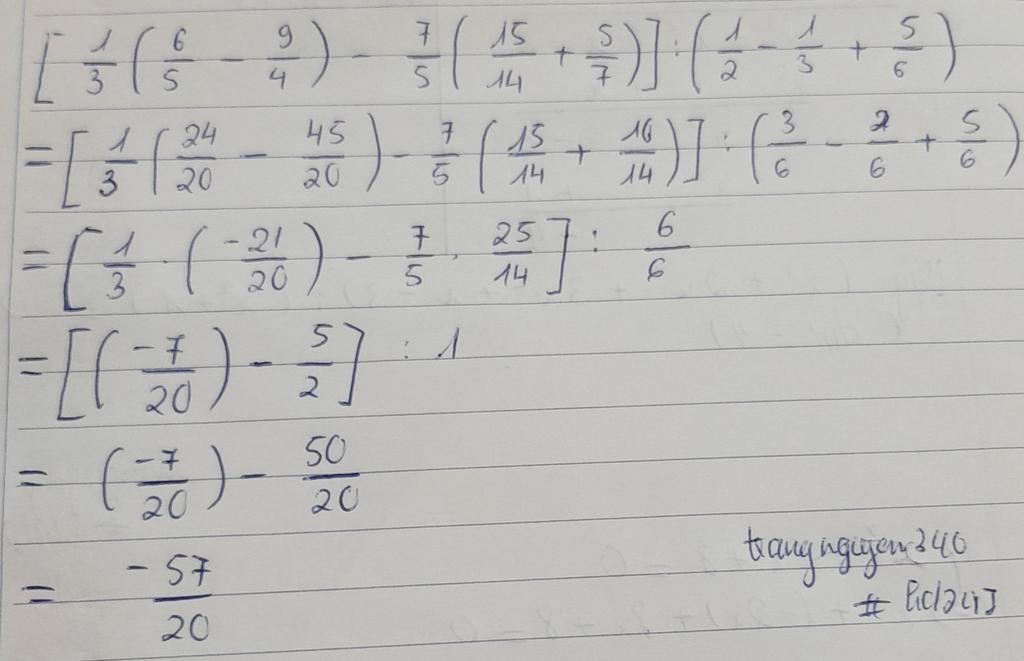 [ 1/3 ( 6/5 - 9/4 ) - 7/5 ( 15/14 + 5/7 ) ] : ( 1/2 - 1/3 + 5/6 )
= [ 1/3 ( 24/20 - 45/20 ) - 7/5 ( 15/14 + 16/14 ) ] : ( 3/6 - 2/6 + 5/6 )
= [ 1/3 . ( -21/20 ) - 7/5 . 25/14 ] : 6/6
= [ ( -7/20 ) - 5/2 ] : 1
= ( -7/20 ) - 50/20
= -57/20
trangnguyen340
#